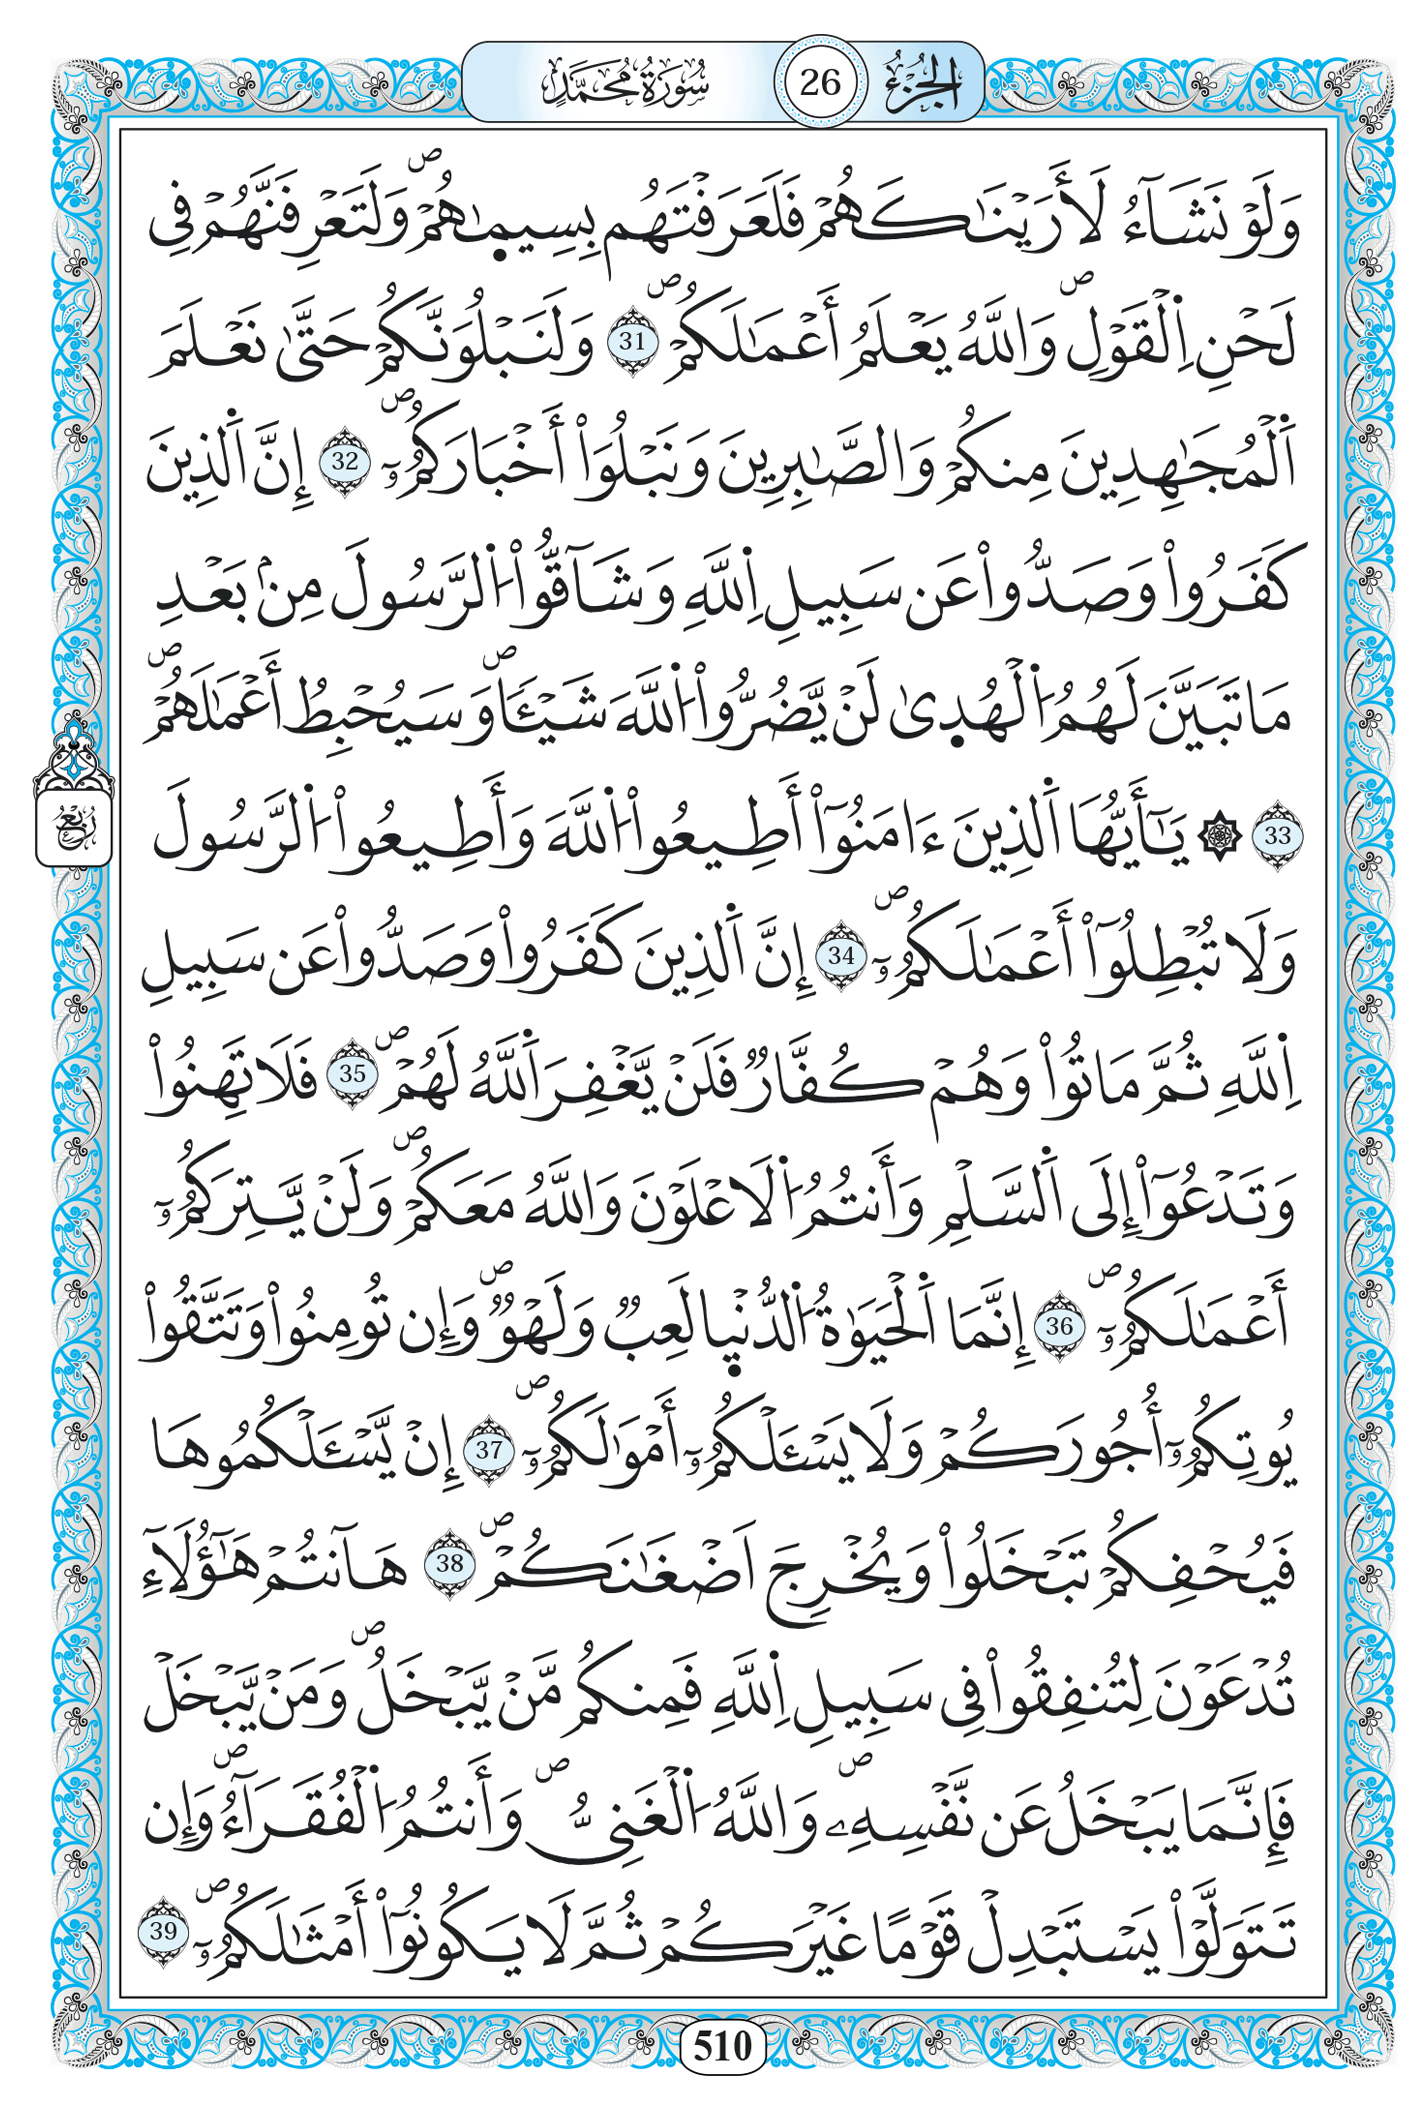 الجزء 26 سورة محمد
وَلَوْ نَشَآءُ لَأَرَيْنَٰكَهُمْ فَلَعَرَفْتَهُم بِسِيمٜىٰهُمْۖ وَلَتَعْرِفَنَّهُمْ فِى
لَحْنِ اِ۬لْقَوْلِۖ وَاللَّهُ يَعْلَمُ أَعْمَٰلَكُمْۖ 31 وَلَنَبْلُوَنَّكُمْ حَتَّىٰ نَعْلَمَ
اَ۬لْمُجَٰهِدِينَ مِنكُمْ وَالصَّٰبِرِينَ وَنَبْلُوَاْ أَخْبَارَكُمُۥٓۖ 32 إِنَّ اَ۬لذِينَ
كَفَرُواْ وَصَدُّواْ عَن سَبِيلِ اِ۬للَّهِ وَشَآقُّواْ اُ۬لرَّسُولَ مِنۢ بَعْدِ
مَا تَبَيَّنَ لَهُمُ اُ۬لْهُدٜىٰ لَنْ يَّضُرُّواْ اُ۬للَّهَ شَيْـَٔاۖ وَسَيُحْبِطُ أَعْمَٰلَهُمْۖ
33 ۞ يَٰٓأَيُّهَا اَ۬لذِينَ ءَامَنُوٓاْ أَطِيعُواْ اُ۬للَّهَ وَأَطِيعُواْ اُ۬لرَّسُولَ
وَلَا تُبْطِلُوٓاْ أَعْمَٰلَكُمُۥٓۖ 34 إِنَّ اَ۬لذِينَ كَفَرُواْ وَصَدُّواْ عَن سَبِيلِ
اِ۬للَّهِ ثُمَّ مَاتُواْ وَهُمْ كُفَّارٞ فَلَنْ يَّغْفِرَ اَ۬للَّهُ لَهُمْۖ 35 فَلَا تَهِنُواْ
وَتَدْعُوٓاْ إِلَى اَ۬لسَّلْمِ وَأَنتُمُ اُ۬لَاعْلَوْنَ وَاللَّهُ مَعَكُمْۖ وَلَنْ يَّتِرَكُمُۥٓ
أَعْمَٰلَكُمُۥٓۖ 36 إِنَّمَا اَ۬لْحَيَوٰةُ اُ۬لدُّنْيٜا لَعِبٞ وَلَهْوٞۖ وَإِن تُومِنُواْ وَتَتَّقُواْ
يُوتِكُمُۥٓ أُجُورَكُمْ وَلَا يَسْـَٔلْكُمُۥٓ أَمْوَٰلَكُمُۥٓۖ 37 إِنْ يَّسْـَٔلْكُمُوهَا
فَيُحْفِكُمْ تَبْخَلُواْ وَيُخْرِجَ اَضْغَٰنَكُمْۖ 38 هَآنتُمْ هَٰٓؤُلَآءِ
تُدْعَوْنَ لِتُنفِقُواْ فِى سَبِيلِ اِ۬للَّهِ فَمِنكُم مَّنْ يَّبْخَلُۖ وَمَنْ يَّبْخَلْ
فَإِنَّمَا يَبْخَلُ عَن نَّفْسِهِۦۖ وَاللَّهُ اُ۬لْغَنِىُّۖ وَأَنتُمُ اُ۬لْفُقَرَآءُۖ وَإِن
تَتَوَلَّوْاْ يَسْتَبْدِلْ قَوْمًا غَيْرَكُمْ ثُمَّ لَا يَكُونُوٓاْ أَمْثَٰلَكُمُۥٓۖ 39
ربع
510